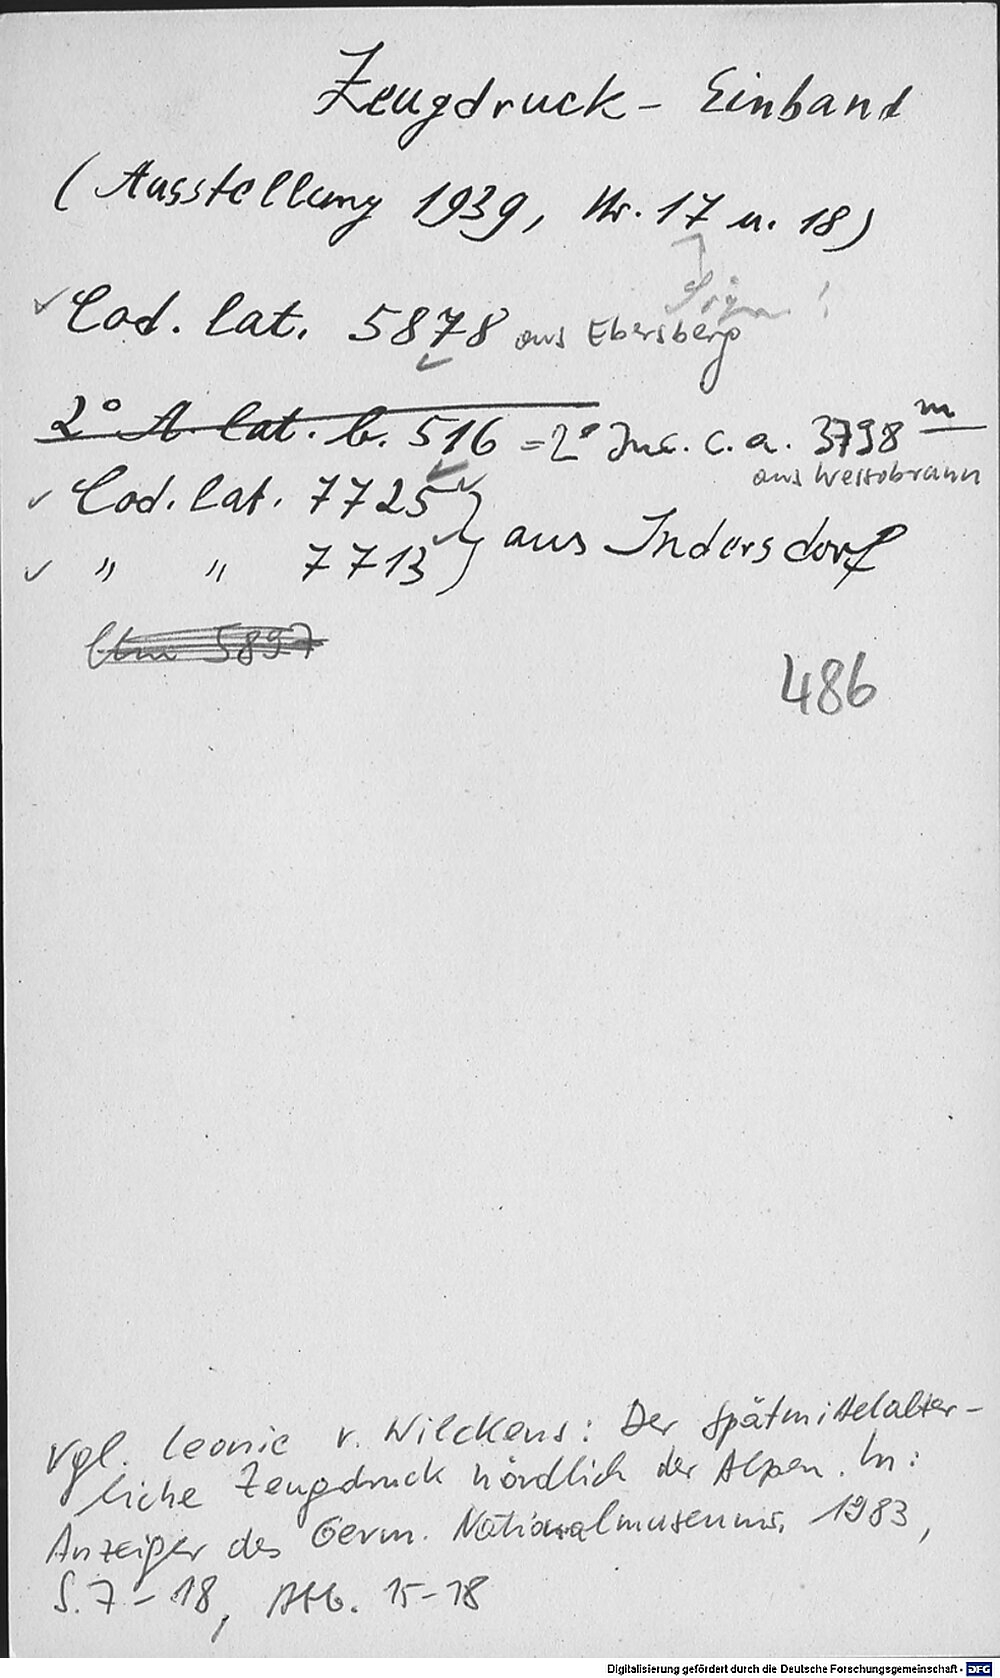 Zeugdruck - Einband
(Ausstellung 1939, Nr. 17 u. 18)
Cod. lat. 5878 aus Ebersberg
2° A. lat. b. 516 = 2° Inc. c. a. 3798 m
aus Wessobrunn
Cod. lat. 7725 } aus Indersdorf
" " 7713 }
Clm 5897
486
Vgl. Leonie v. Wilckens: Der spätmittelalter-
liche Zeugdruck nördlich der Alpen. In:
Anzeiger des Germ. Nationalmuseums. 1983,
S. 7-18, Abb. 15-18
Digitalisierung gefördert durch die Deutsche Forschungsgemeinschaft - DFG